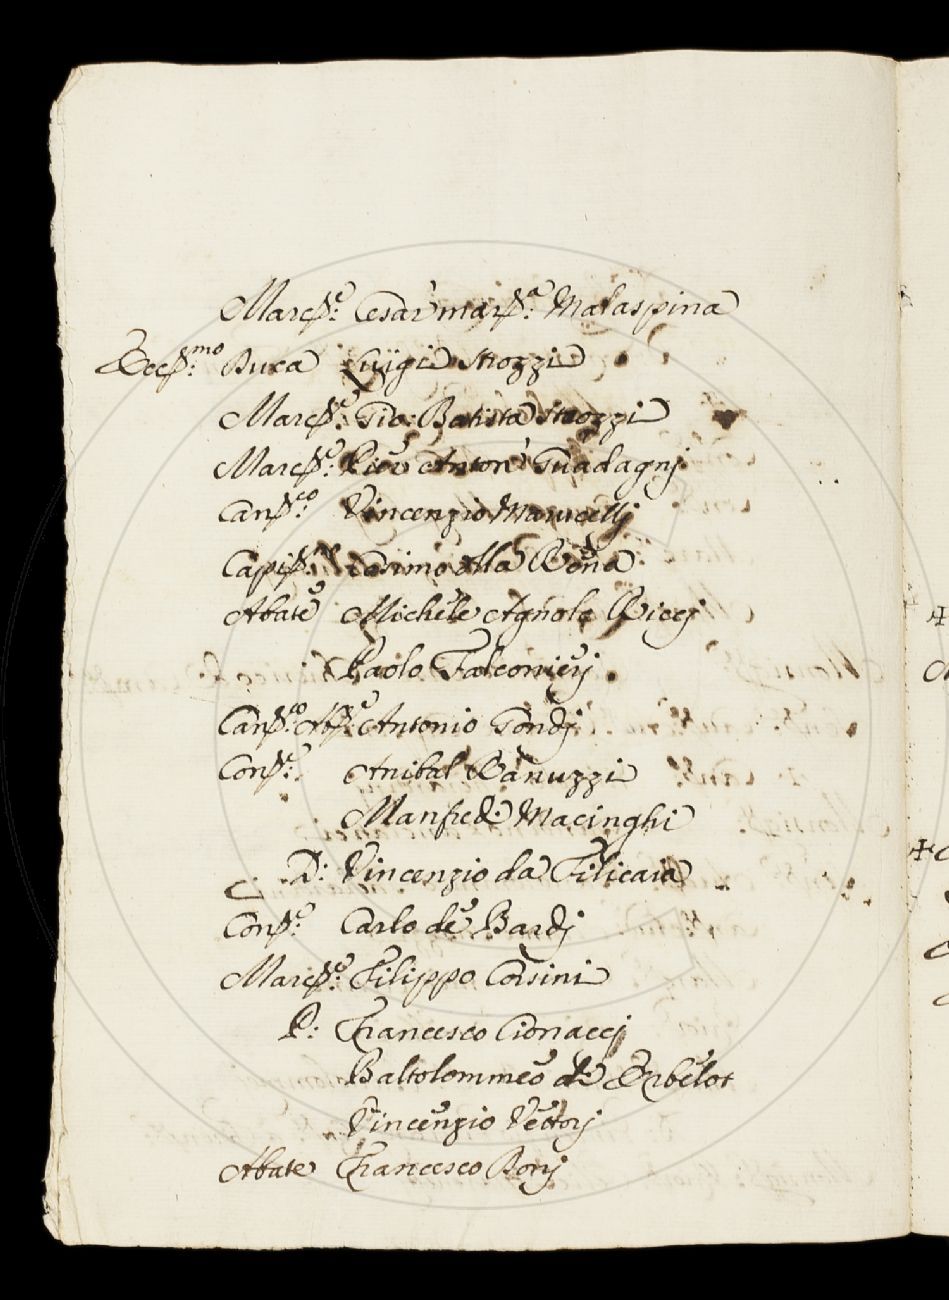 Marche: Cesar' march.a Malaspina
Ecc.mo Duca Luigi Strozzi
Marche: Gio: Batista Strozzi
Marche: Pier Anton' Guadagnj
Can.co Vincenzio Marucellj
Capi: Cosimo della Rena
Abate Michele Agnolo Riccj
Paolo Falconierj
Can.co Ab.e Antonio Gondj
Con.e: Anibal Ranuzzi
Manfredi Macinghi
D: Vincenzio da Filicaia
Con.e: Carlo de Bardj
Marche: Filippo Corsini
P: Francesco Cionaccj
Baltolommeo de Erbelot
Vincenzio Vettorj
Abate Francesco Bonj